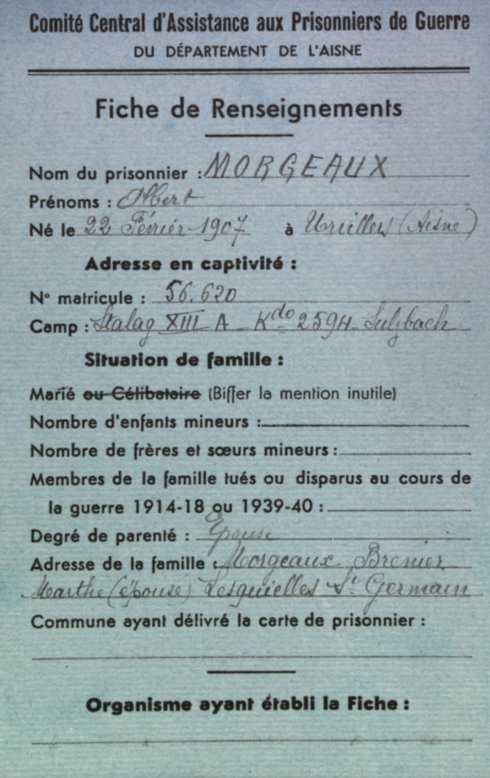 Comité Central d'Assistance aux Prisonniers de Guerre
DU DÉPARTEMENT DE L'AISNE
Fiche de Renseignements
Nom du prisonnier : MORGEAUX
Prénoms : Albert
Né le 22 Février 1907 à Urvillers (Aisne)
Adresse en captivité :
N° matricule : 56.620
Camp : Stalag XIII A Kdo 2594 Sulzbach
Situation de famille :
Marié ou Célibataire (Biffer la mention inutile)
Nombre d'enfants mineurs :
Nombre de frères et sœurs mineurs :
Membres de la famille tués ou disparus au cours de
la guerre 1914-18 ou 1939-40 :
Degré de parenté : Epouse
Adresse de la famille : Morgeaux Brenier
Marthe (épouse) Lesquielles St Germain
Commune ayant délivré la carte de prisonnier :
Organisme ayant établi la Fiche :